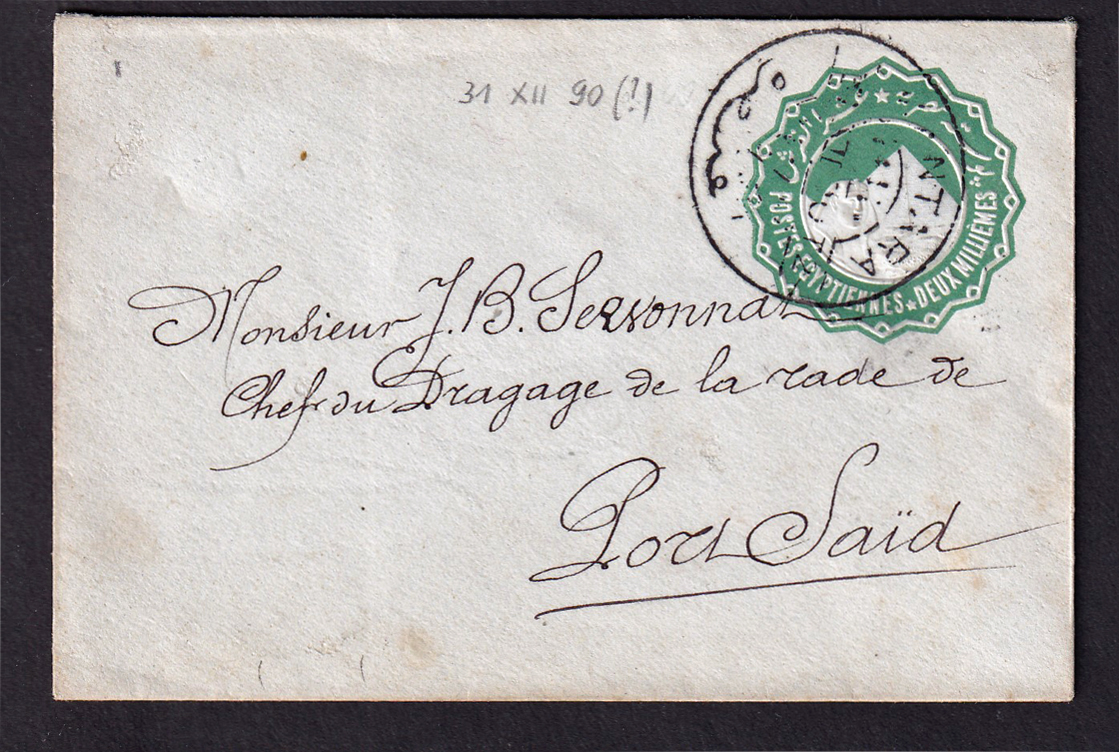 31 XII 90 (?)
POSTES EGYPTIENNES ★ DEUX MILLIEMES
NTARA
Monsieur J. B. Servonnat
Chef du Dragage de la rade de
Port Saïd